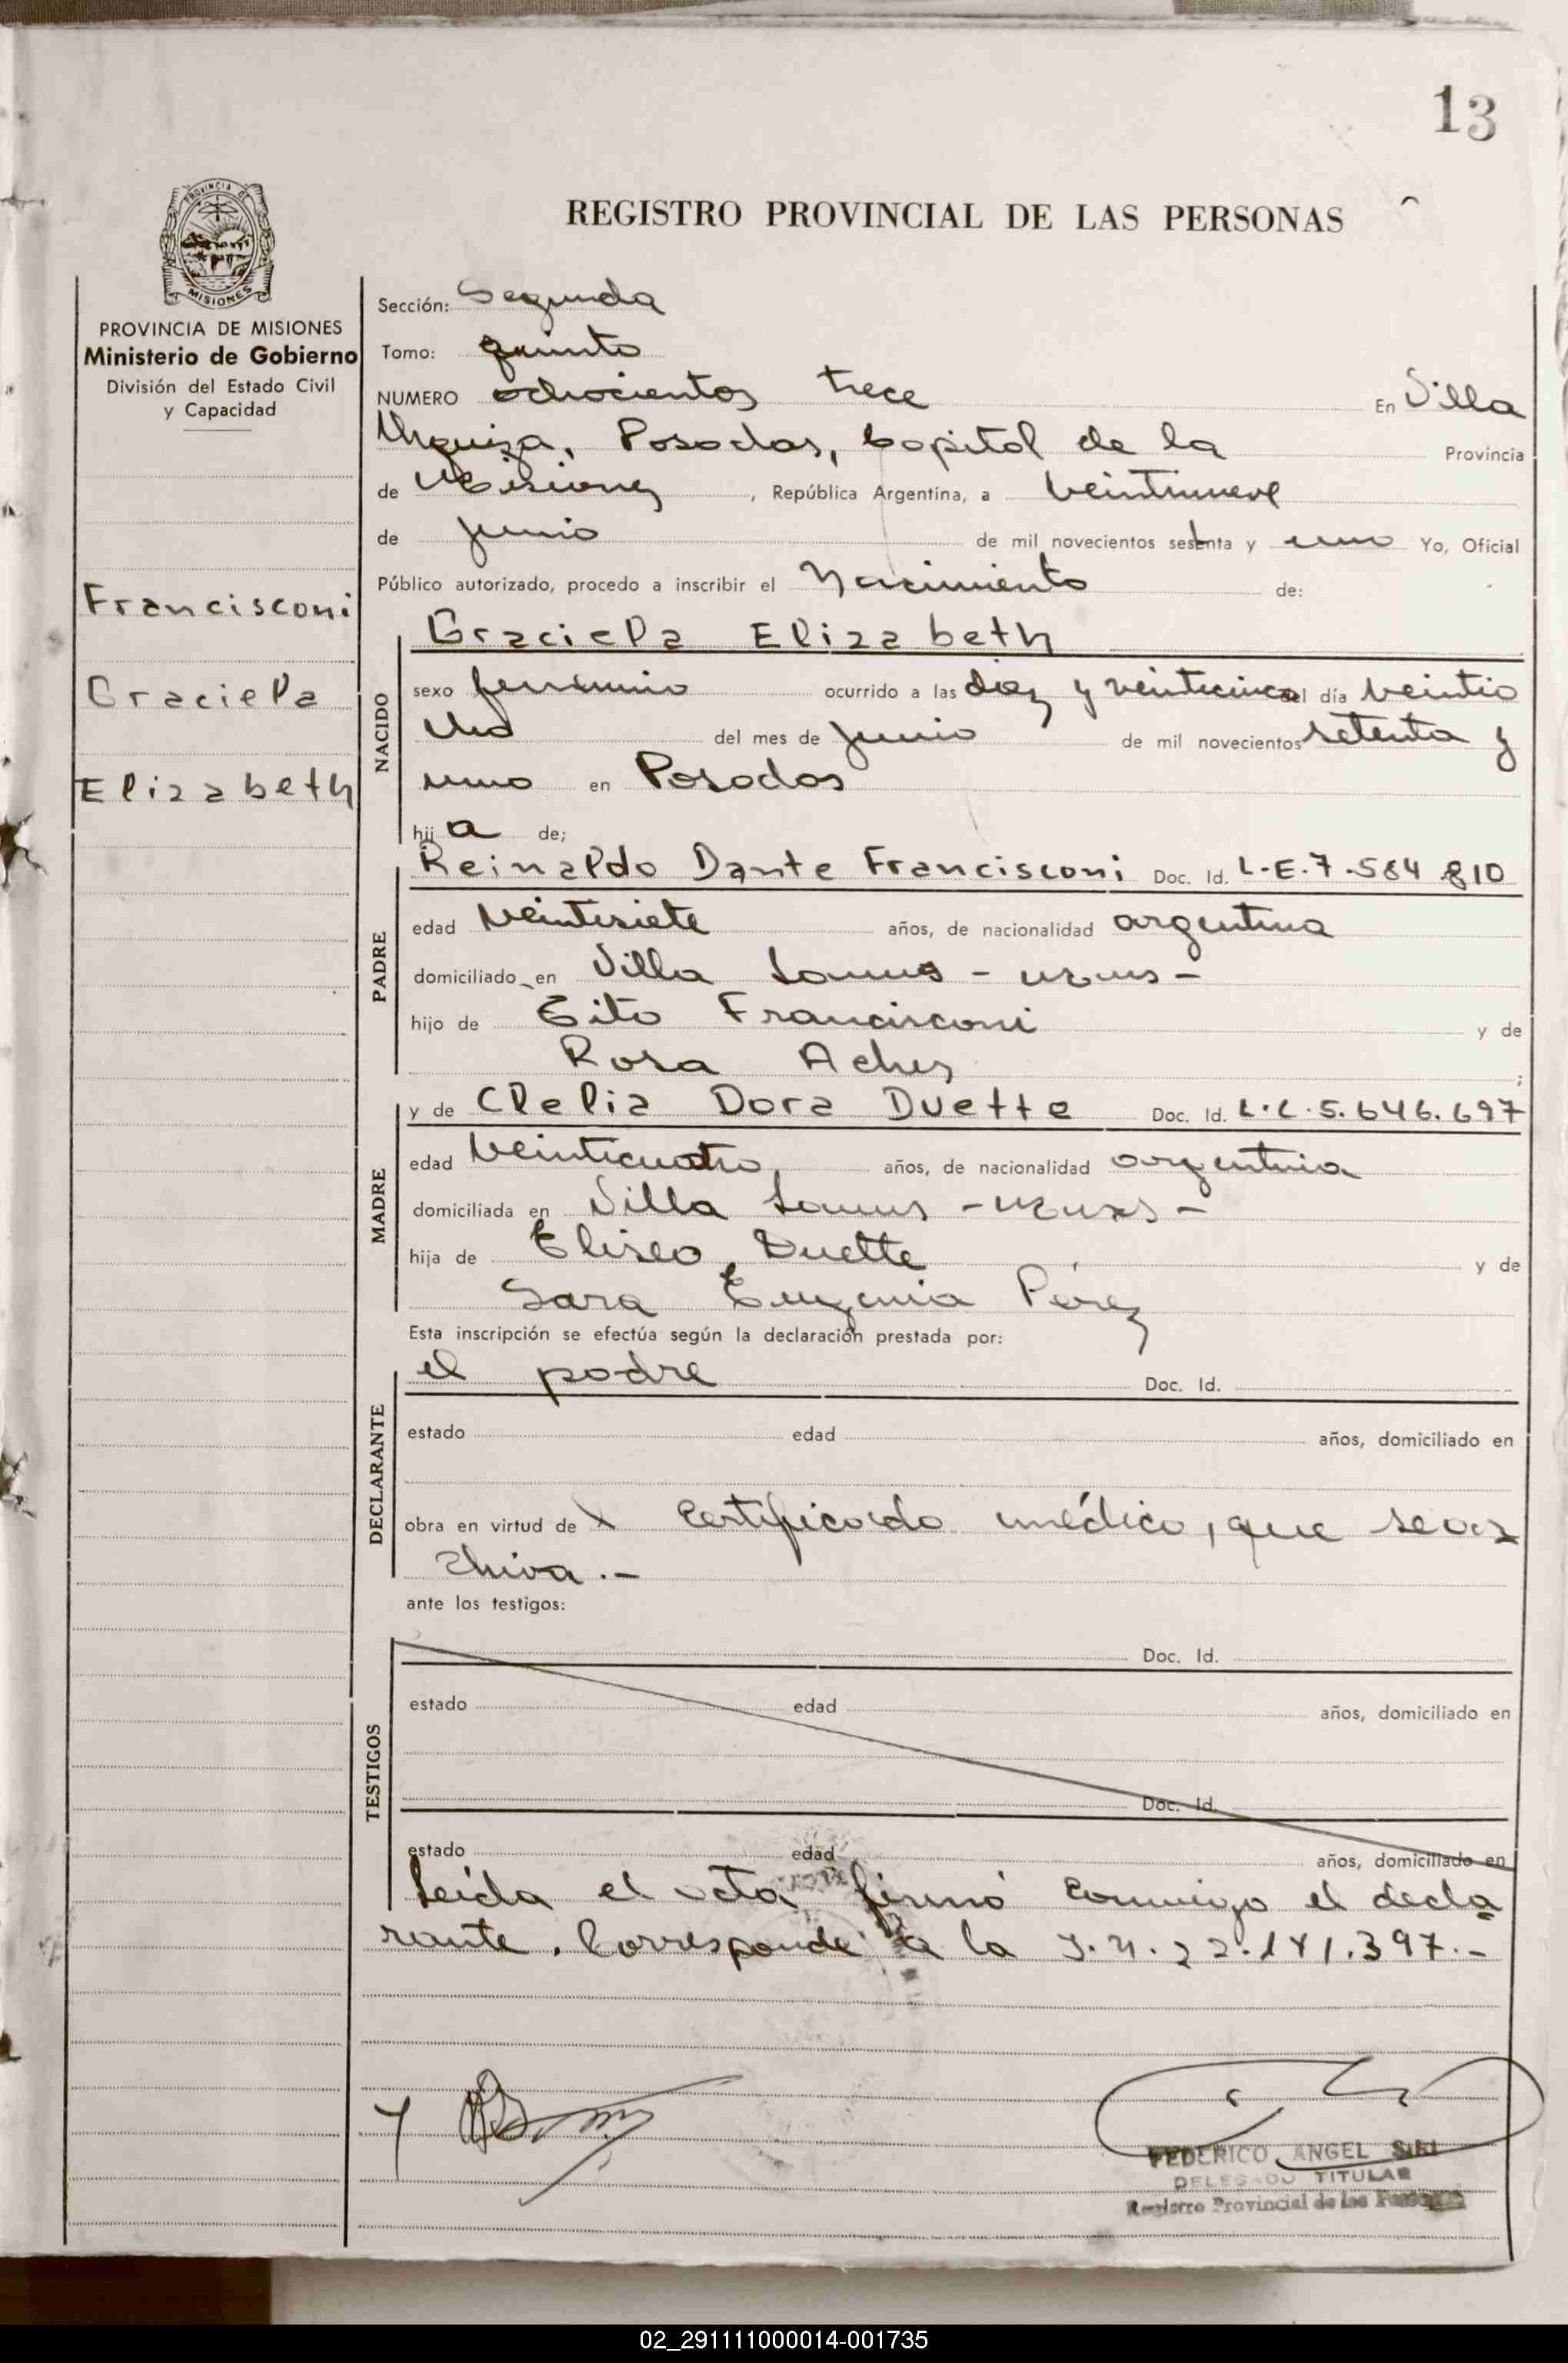 13
PROVINCIA DE
MISIONES
REGISTRO PROVINCIAL DE LAS PERSONAS
PROVINCIA DE MISIONES
Ministerio de Gobierno
División del Estado Civil
y Capacidad
Francisconi
Graciela
Elizabeth
Sección: Segunda
Tomo: quinto
NUMERO ochocientos trece En Villa
Urquiza, Posadas, Capital de la Provincia
de Misiones, República Argentina, a veintinueve
de junio de mil novecientos setenta y uno Yo, Oficial
Público autorizado, procedo a inscribir el Nacimiento de:
NACIDO
Graciela Elizabeth
sexo femenino ocurrido a las diez y veinticinco del día veintio
cho del mes de junio de mil novecientos setenta y
uno en Posadas
hija de;
PADRE
Reinaldo Dante Francisconi Doc. Id. L.E. 7.584.810
edad veintisiete años, de nacionalidad argentina
domiciliado en Villa Lanus -
hijo de Tito Francisconi y de
Rosa Aches ;
MADRE
y de Clelia Dora Duette Doc. Id. L.C. 5.646.697
edad veinticuatro, años, de nacionalidad argentina
domiciliada en Villa Lanus -
hija de Eliseo Duette y de
Sara Eugenia Pérez
Esta inscripción se efectúa según la declaración prestada por:
DECLARANTE
el padre Doc. Id.
estado edad años, domiciliado en
obra en virtud de certificado médico, que se ar
chiva.-
ante los testigos:
TESTIGOS
Doc. Id.
estado edad años, domiciliado en
Doc. Id.
estado edad años, domiciliado en
Leída el acta firmó conmigo el decla
rante. Corresponde a la 22.141.397.-
FEDERICO ANGEL
DELEGADO TITULAR
Registro Provincial de las Personas
02_291111000014-001735